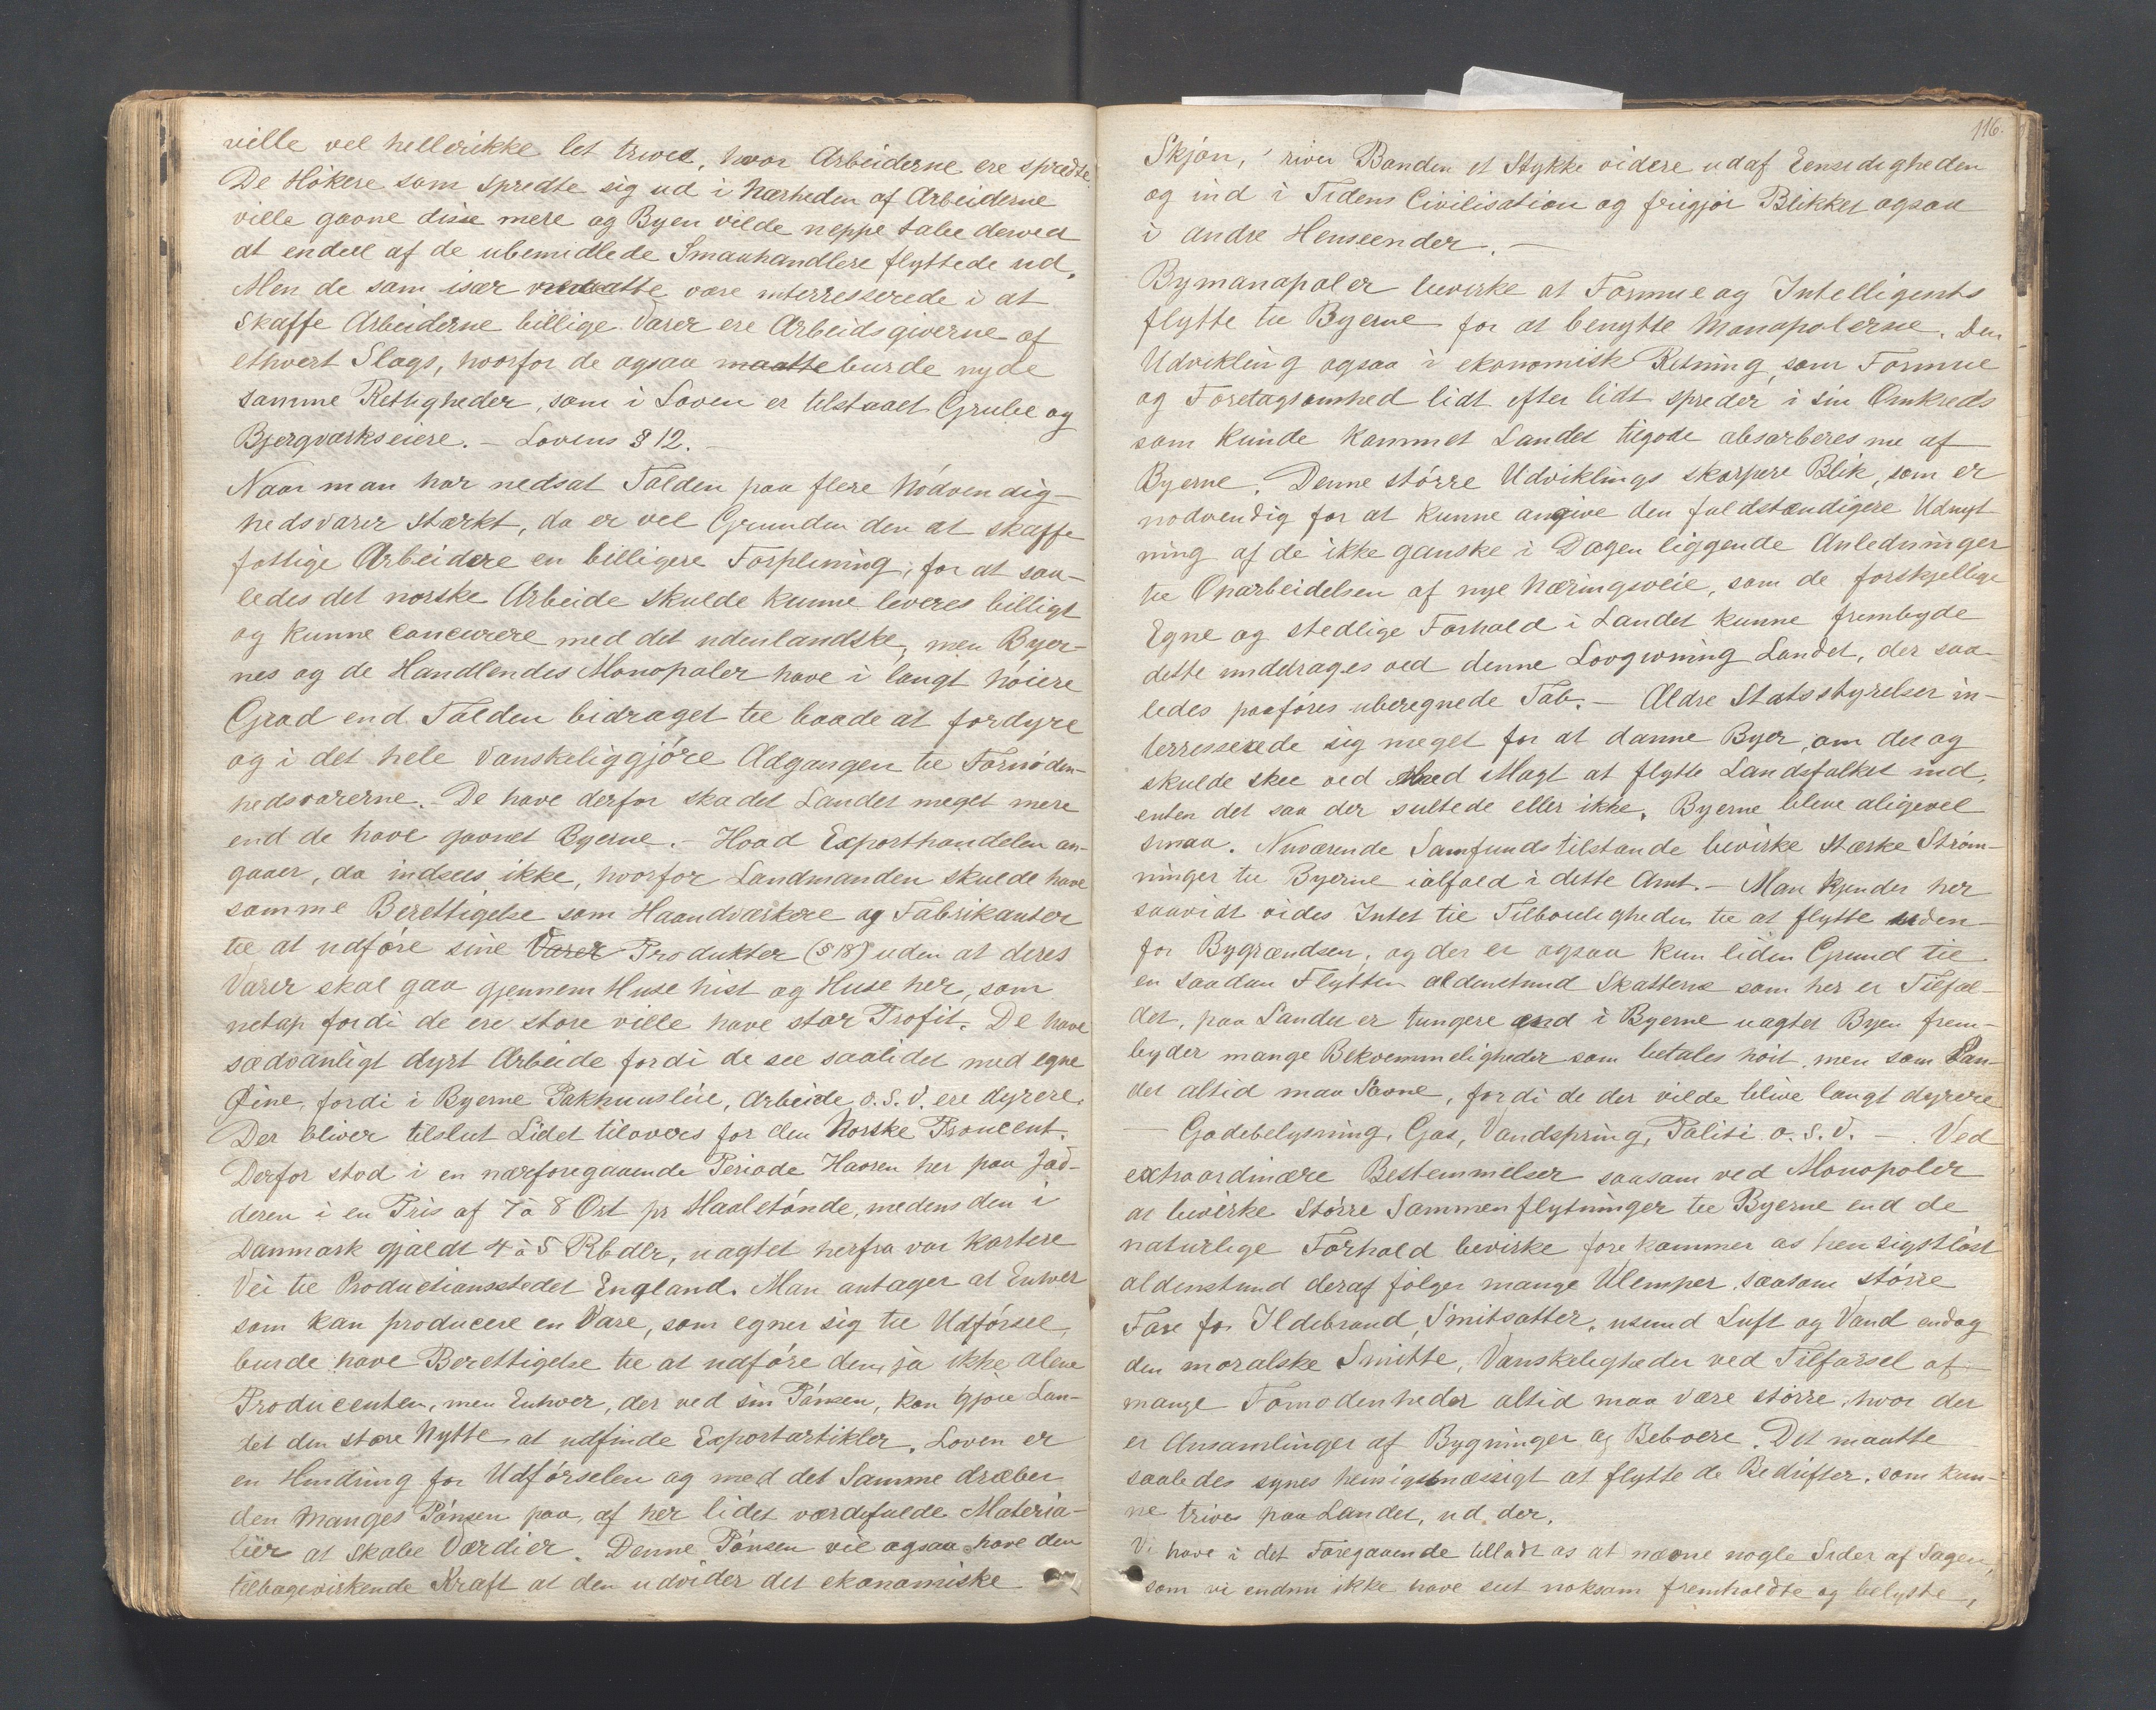 ville vel hellerikke let trives, hvor Arbeiderne ere spredte.
De Høkere som spredte sig ud i Nærheden af Arbeiderne
ville gavne disse mere og Byen vilde neppe tabe derved
at endeel af de ubemidlede Smaahandlere flyttede ud.
Men de som især maatte være interresserede i at
Skaffe Arbeiderne billige Varer ere Arbeidsgiverne af
ethvert Slags, hvorfor de ogsaa maatte burde nyde
samme Rettigheder, som i Loven er tilstaaet Grube og
Bjergværkseiere. – Lovens § 12. –
Naar man har nedsat Tolden paa flere Nødvendig-
hedsvarer stærkt, da er vel Grunden den at skaffe
fattige Arbeidere en billigere Forpleining, for at saa-
ledes det norske Arbeide skulde kunne leveres billigt
og kunne concurere med det udenlandske, men Byer-
nes og de Handlendes Monopoler have i langt høiere
Grad end Tolden bidraget til baade at fordyre
og i det hele vanskeliggjøre Adgangen til Fornøden-
hedsvarerne. – De have derfor skadet Landet meget mere
end de have gavnet Byerne. – Hvad Exporthandelen an-
gaaer, da indsees ikke, hvorfor Landmanden skulde have
samme Berettigelse som Haandværkere og Fabrikanter
til at udføre sine Varer Produkter (§ 18) uden at deres
Varer skal gaa gjennem Huse hist og Huse her, som
netop fordi de ere store ville have stor Profit. De have
sædvanligt dyrt Arbeide fordi de see saalidet med egne
Øine, fordi i Byerne Pakhuusleie, Arbeide, o.s.v. ere dyrere.
Der bliver tilslut Lidet tilovers for den Norske Producent.
Derfor stod i en nærforegaaende Periode Havren her paa Jæd-
deren i en Pris af 7 à 8 Ort pr Maaletønde, medens den i
Danmark gjældt 4 à 5 Rbdlr, uagtet herfra var kortere
Vei til Productionsstedet England. Man antager at Enhver
som kan producere en Vare, som egner sig til Udførsel,
burde have Berettigelse til at udføre den, ja ikke alene
Producenten, men Enhver, der ved sin Pønsen, kan gjøre Lan-
det den store Nytte at udfinde Exportartikler. Loven er
en Hindring for Udførselen og med det Samme dræber
den manges Pønsen paa, af her lidet værdifulde Materia-
lier at skabe Værdier. Denne Pønsen vil ogsaa have den
tilbagevirkende Kraft at den udvider det ekonomiske
116.
Skjøn, river Bonden et Stykke videre udaf Eensidigheden
og ind i Tidens Civilisation og frigjør Blikket ogsaa
i andre Henseender. –
Bymonopoler bevirke at Formue og Intelligents
flytte til Byerne for at benytte Monopolerne. Den
Udvikling ogsaa i ekonomisk Retning, som Formue
og Foretagsomhed lidt efter lidt spreder i sin Omkreds
som kunde kommet Landet tilgode absorberes nu af
Byerne. Denne større Udviklings skarpere Blik, som er
nødvendig for at kunne angive den fuldstændigere Udnyt-
ning af de ikke ganske i Dagen liggende Anledninger
til Oparbeidelsen af nye Næringsveie, som de forskjellige
Egne og stedlige Forhold i Landet kunne frembyde
dette unddrages ved denne Lovgivning Landet, der saa-
ledes paaføres uberegnede Tab. – Ældre Statsstyrelser in-
terresserede sig meget for at danne Byer, om det og
skulde skee ved Med Magt at flytte Landsfolket ind,
enten det saa der sultede eller ikke. Byerne bleve aligevel
smaa. Nuværende Samfundstilstande bevirke stærke Strøm-
ninger til Byerne ialfald i dette Amt. – Man kjender her
saavidt vides Intet til Tilbøieligheden til at flytte uden-
for Bygrændsen, og der er ogsaa kun liden Grund til
en saadan Flytten aldenstund Skatterne som her er Tilfæl-
det, paa Landet er tungere end i Byerne uagtet Byen frem-
byder mange Bekvemmeligheder som betales høit, men som Lan-
det altid maa savne, fordi de der vilde blive langt dyrere
– Gadebelysning, Gas, Vandspring, Politi o.s.v. – . Ved
extraordinære Bestemmelser saasom ved Monopoler
at bevirke større Sammenflytninger til Byerne end de
naturlige Forhold bevirke forekommer os hensigtsløst
aldenstund deraf følger mange Ulemper, saasom større
Fare for Ildebrand, Smitsotter, usund Luft og Vand endog
den moralske Smitte, Vanskeligheder ved Tilførsel af
mange Fornødenheder altid maa være større, hvor der
er Ansamlinger af Bygninger og Beboere. Det maatte
saaledes synes hensigtsmæssigt at flytte de Bedrifter, som kun-
ne trives paa Landet, ud der.
Vi have i det Foregaaende tilladt os at nævne nogle Sider af Sagen,
som vi endnu ikke have seet noksom fremholdte og belyste,